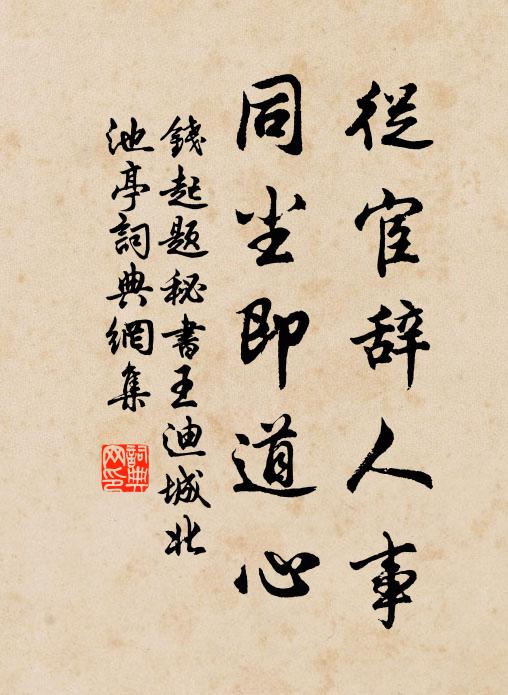 從宦辞人事
同尘即道心
錢起题秘書王迪城北
池亭詞典網集
詞典
网印